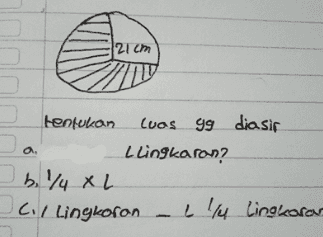 21 cm
tentukan luas yg diasir
a. L Lingkaran?
b. 1/4 x L
C. 1 Lingkaran - L 1/4 Lingkaran